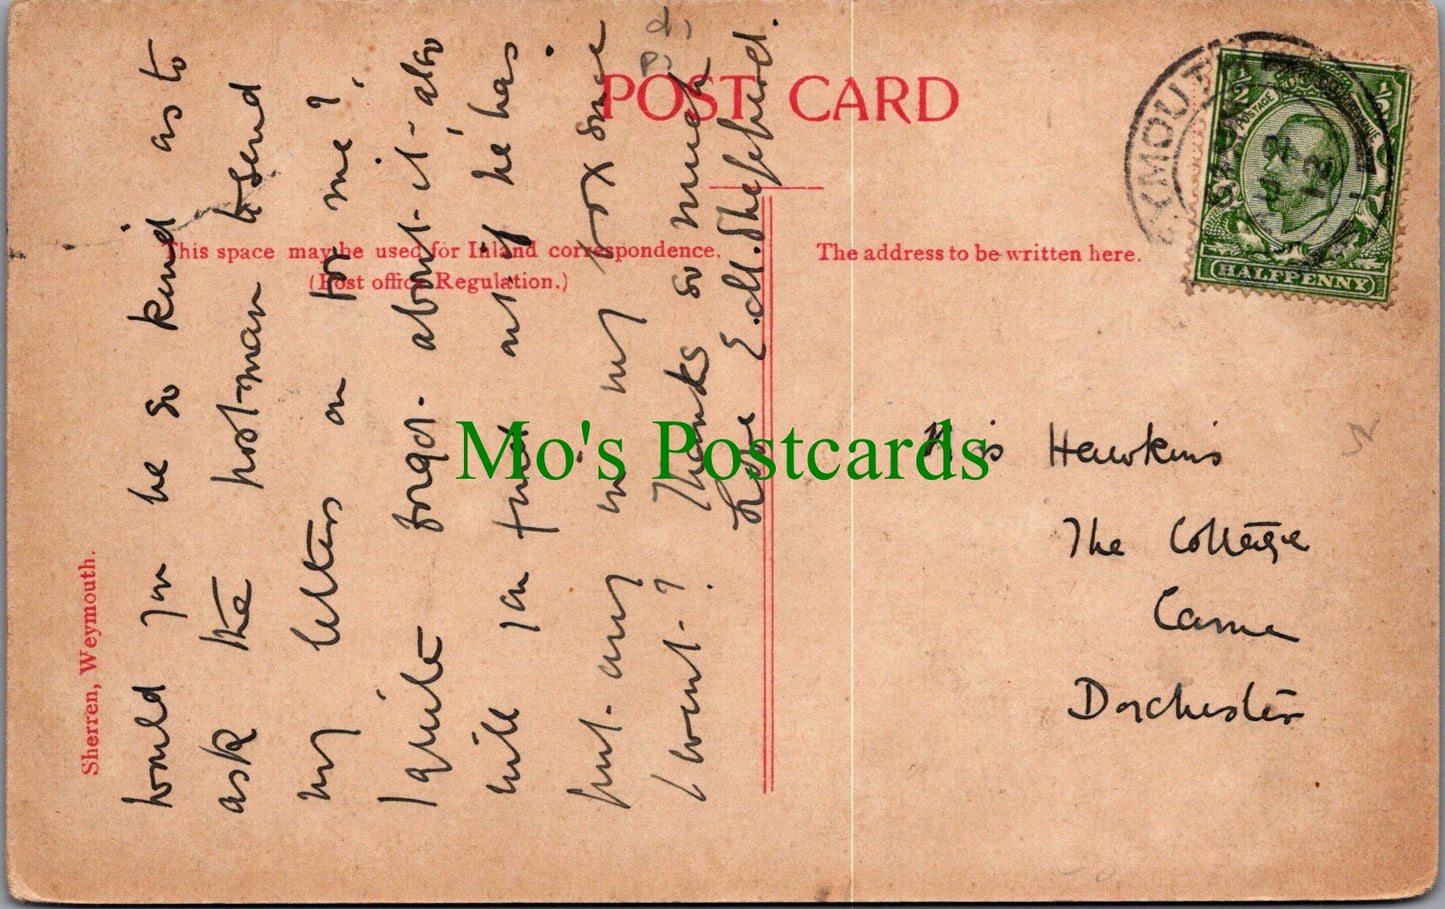 POST CARD
This space may be used for Inland correspondence.
(Post office Regulation.)
The address to be written here.
Sherren, Weymouth.
would you be so kind as to
ask the post-man to send
my letters on for me?
I quite forgot about it - also
will you find out if he has
put any in my box since
I went?
Thanks so much
Love E.M. Shepherd.
Mis Hawkins
The Cottage
Came
Dorchester
POSTAGE
HALFPENNY
Mo's Postcards